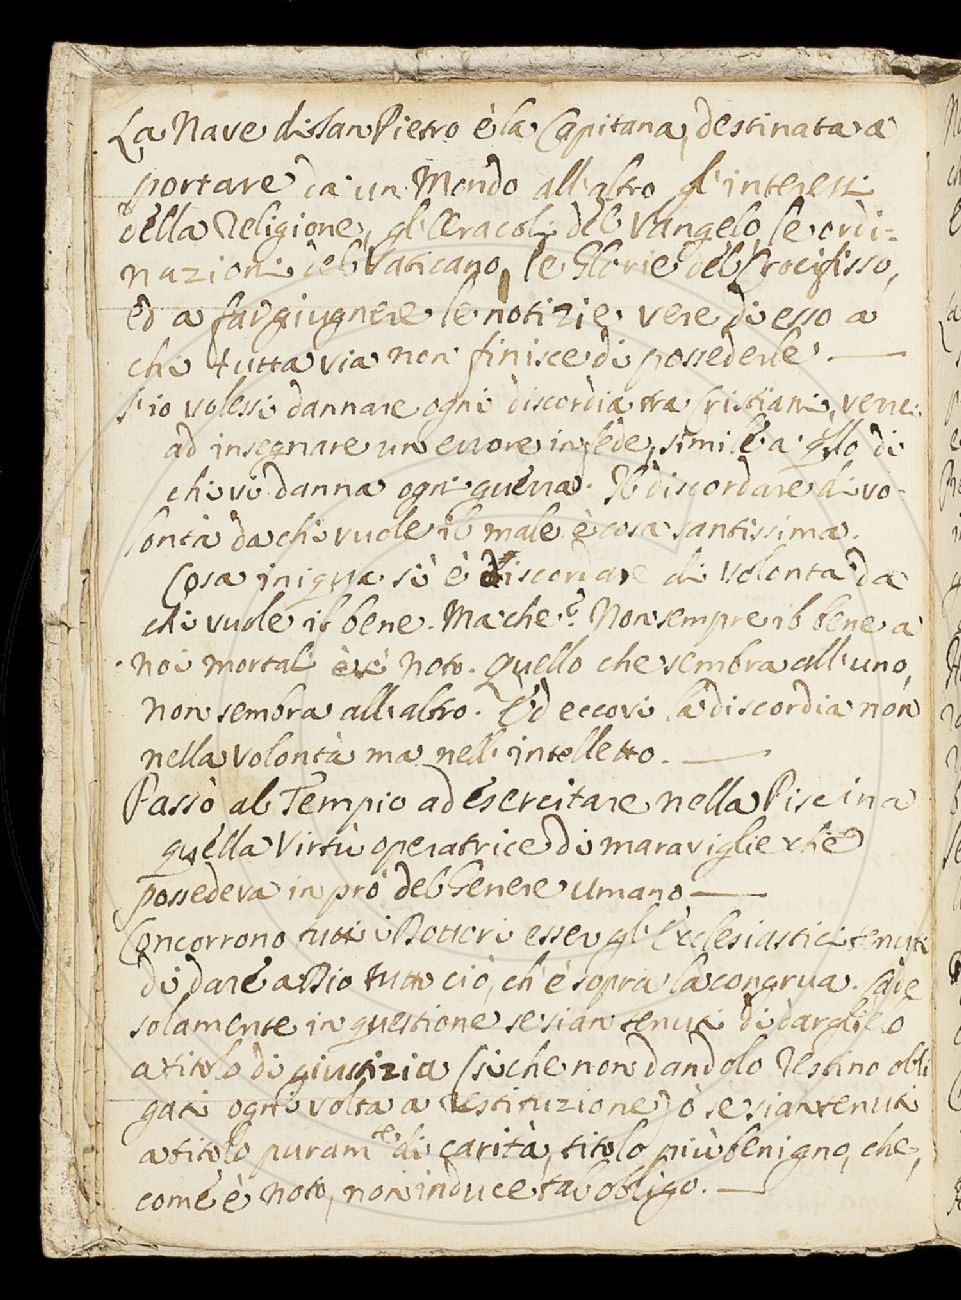 La Nave di San Pietro è la Capitana, destinata a
portare da un Mondo all'altro gl'interessi
della Religione, gl'Oracoli del Vangelo, le ordi-
nazioni del Vaticano, le Glorie del Crocifisso,
ed a far giugnere le notizie vere di esso a
chi tutta via non finisce di possederle. —
S'io volessi dannare ogni discordia tra Cristiani, verrei
ad insegnare un errore in fede, simile a qllo di
chi vi danna ogni guerra. Il discordare di vo-
lontà da chi vuole il male è cosa santissima.
Cosa iniqua si è discordare di volontà da
chi vuole il bene. Ma che? Non sempre il bene a
noi mortali è noto. Quello che sembra all'uno,
non sembra all'altro. Ed eccovi la discordia non
nella volontà ma nell'intelletto. —
Passò al Tempio ad esercitare nella Piscina
quella Virtù operatrice di maraviglie che
possedeva in pro del Genere umano —
Concorrono tutti i Dottori esser gl'Ecclesiastici tenuti
di dare a Dio tutto ciò, ch'è sopra la congrua. Cade
solamente in questione se sian tenuti di darglielo
a titolo di giustizia (si che non dandolo restino obli
gati ogni volta a restituzione) ò se sian tenuti
a titolo puram.te di carità, titolo più benigno, che,
come è noto, non induce tal obligo. —